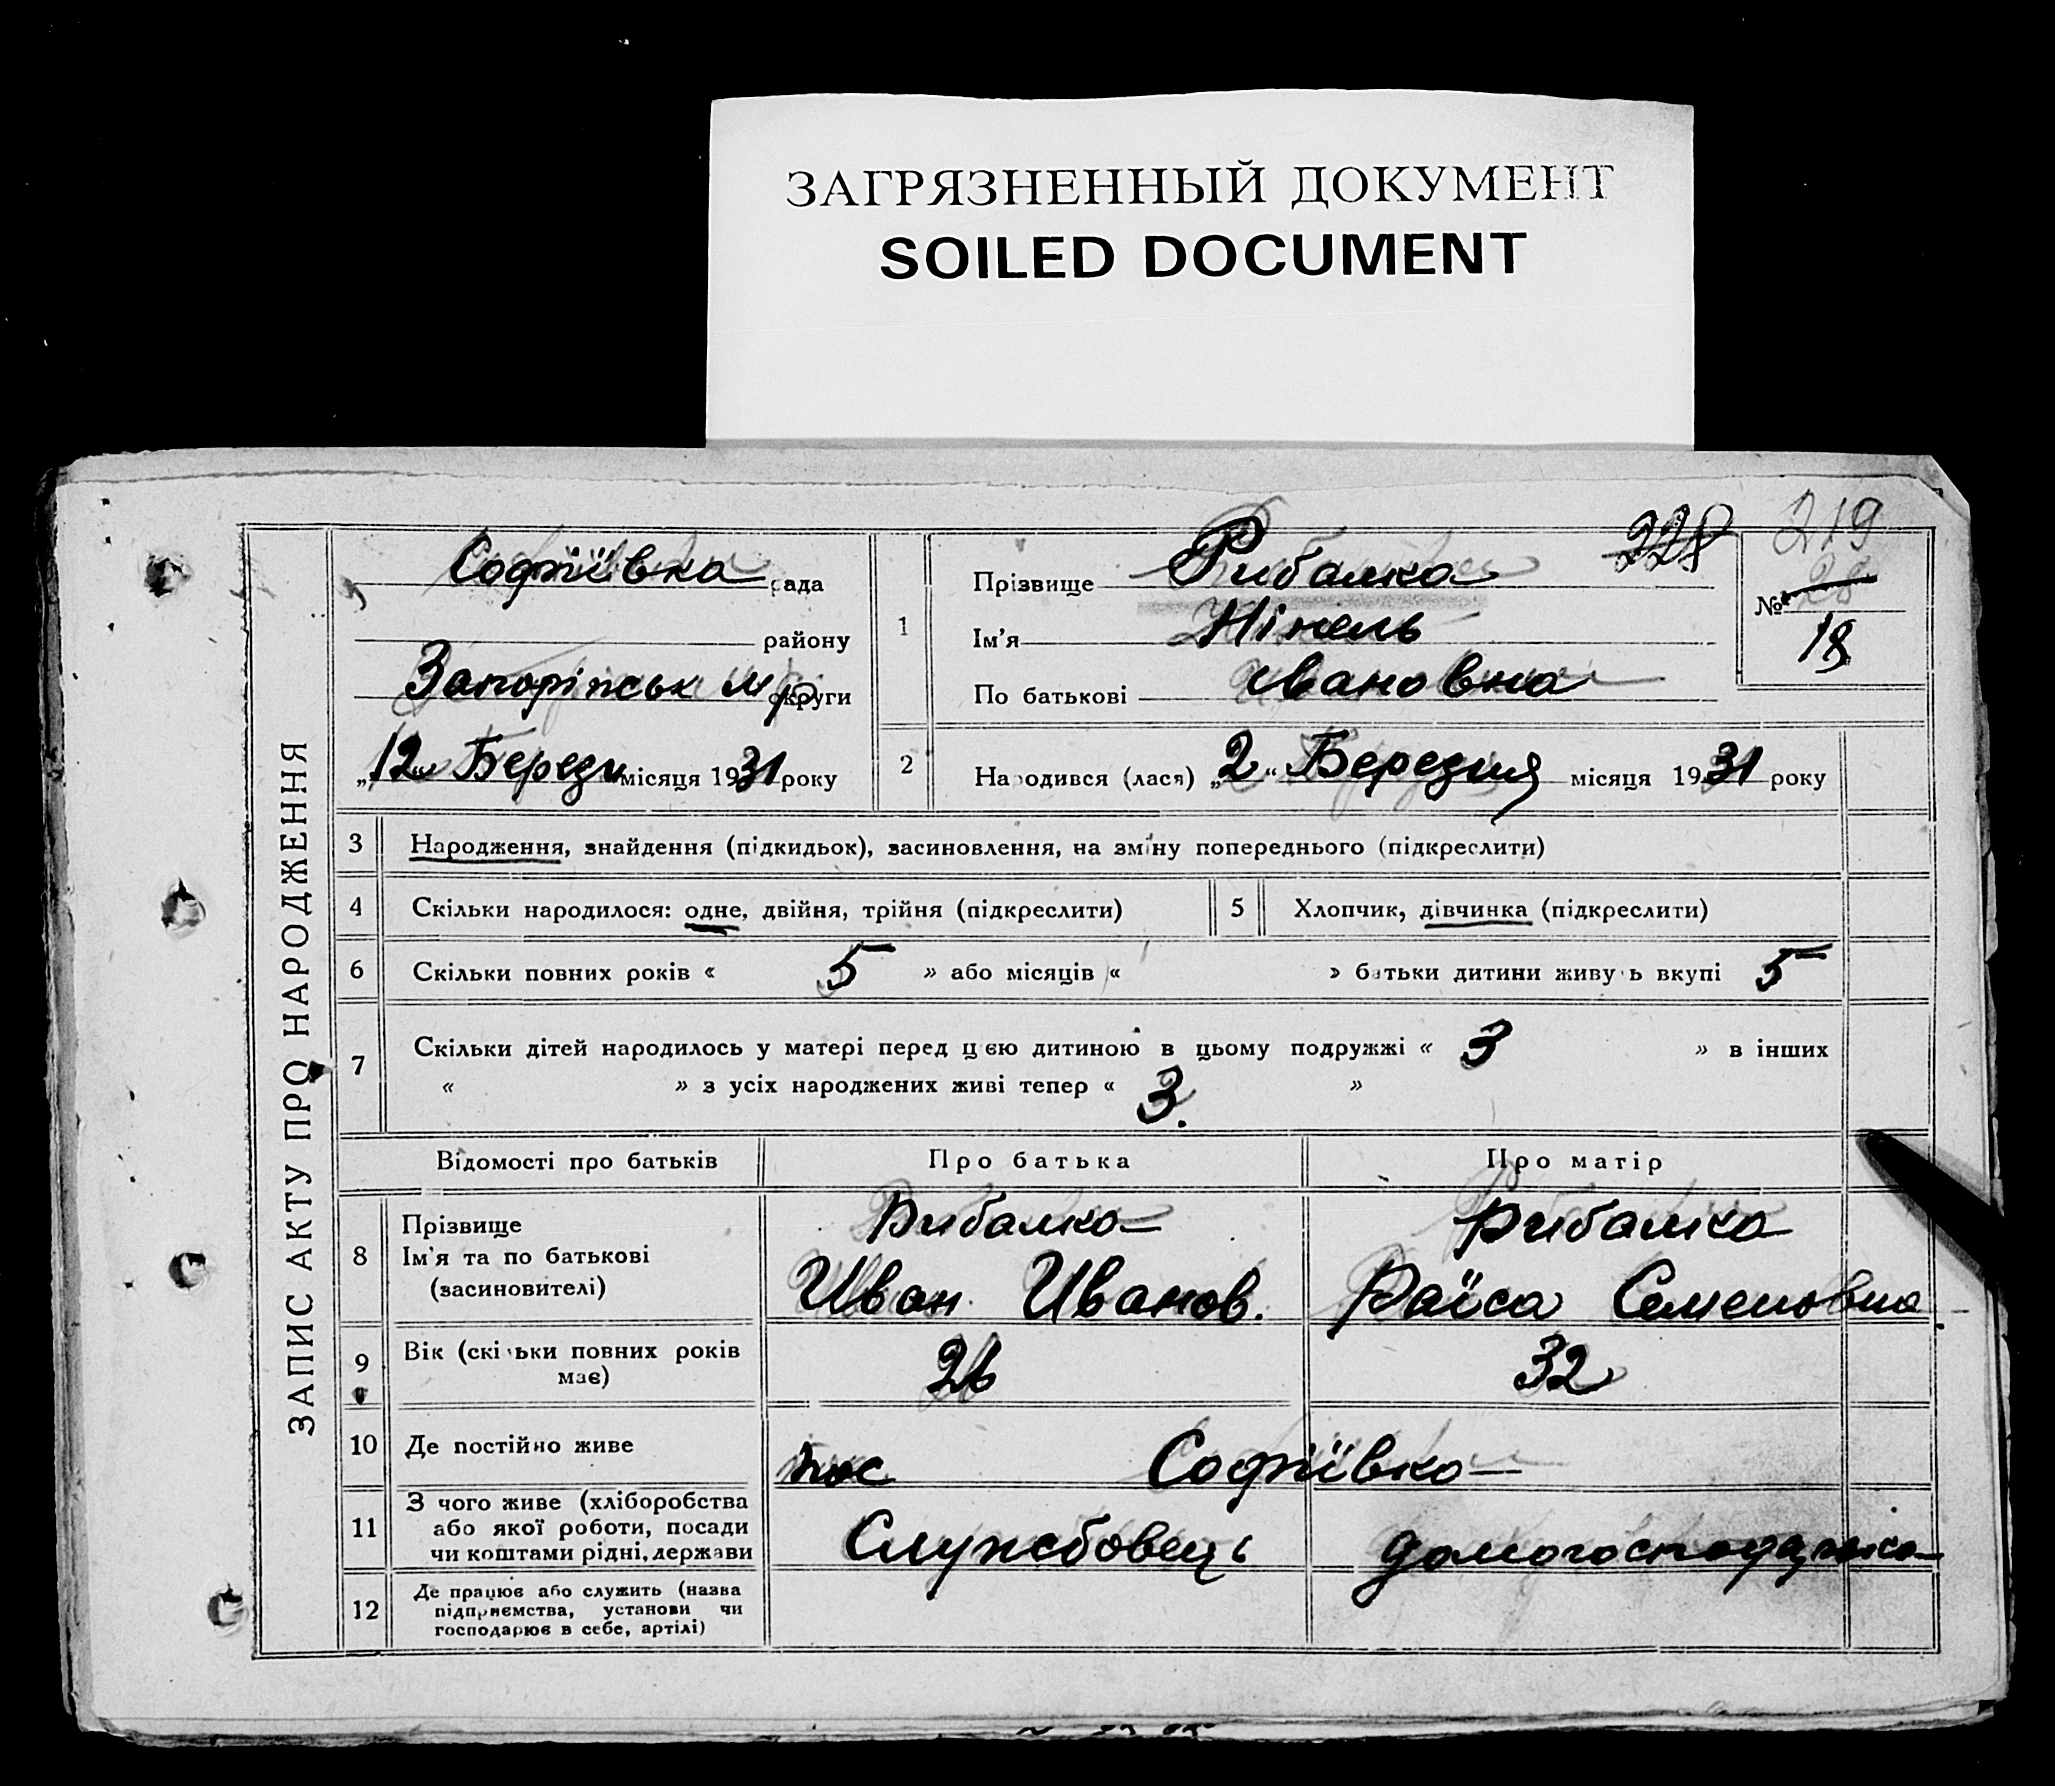 ЗАГРЯЗНЕННЫЙ ДОКУМЕНТ
SOILED DOCUMENT
ЗАПИС АКТУ ПРО НАРОДЖЕННЯ
Софіївка рада
району
округи
„12“ Березн місяця 1931 року
228
219
№ 28
18
1
Прізвище Рибалка
Ім'я Нінель
По батькові Івановна
2 Народився (лася) „2“ Березня місяця 1931 року
3 Народження, знайдення (підкидьок), засиновлення, на зміну попереднього (підкреслити)
4 Скільки народилося: одне, двійня, трійня (підкреслити) 5 Хлопчик, дівчинка (підкреслити)
6 Скільки повних років « 5 » або місяців « » батьки дитини живуть вкупі 5
7 Скільки дітей народилось у матері перед цією дитиною в цьому подружжі « 3 » в інших
« » з усіх народжених живі тепер « 3. »
Відомості про батьків Про батька Про матір
8 Прізвище Рибалка Рибалка
Ім'я та по батькові Иван Иванов. Раїса Семеновна
(засиновителі)
9 Вік (скільки повних років має) 26 32
10 Де постійно живе пос Софіївка
11 З чого живе (хліборобства
або якої роботи, посади
чи коштами рідні, держави Службовець
12 Де працює або служить (назва
підприємства, установи чи
господарює в себе, артілі)